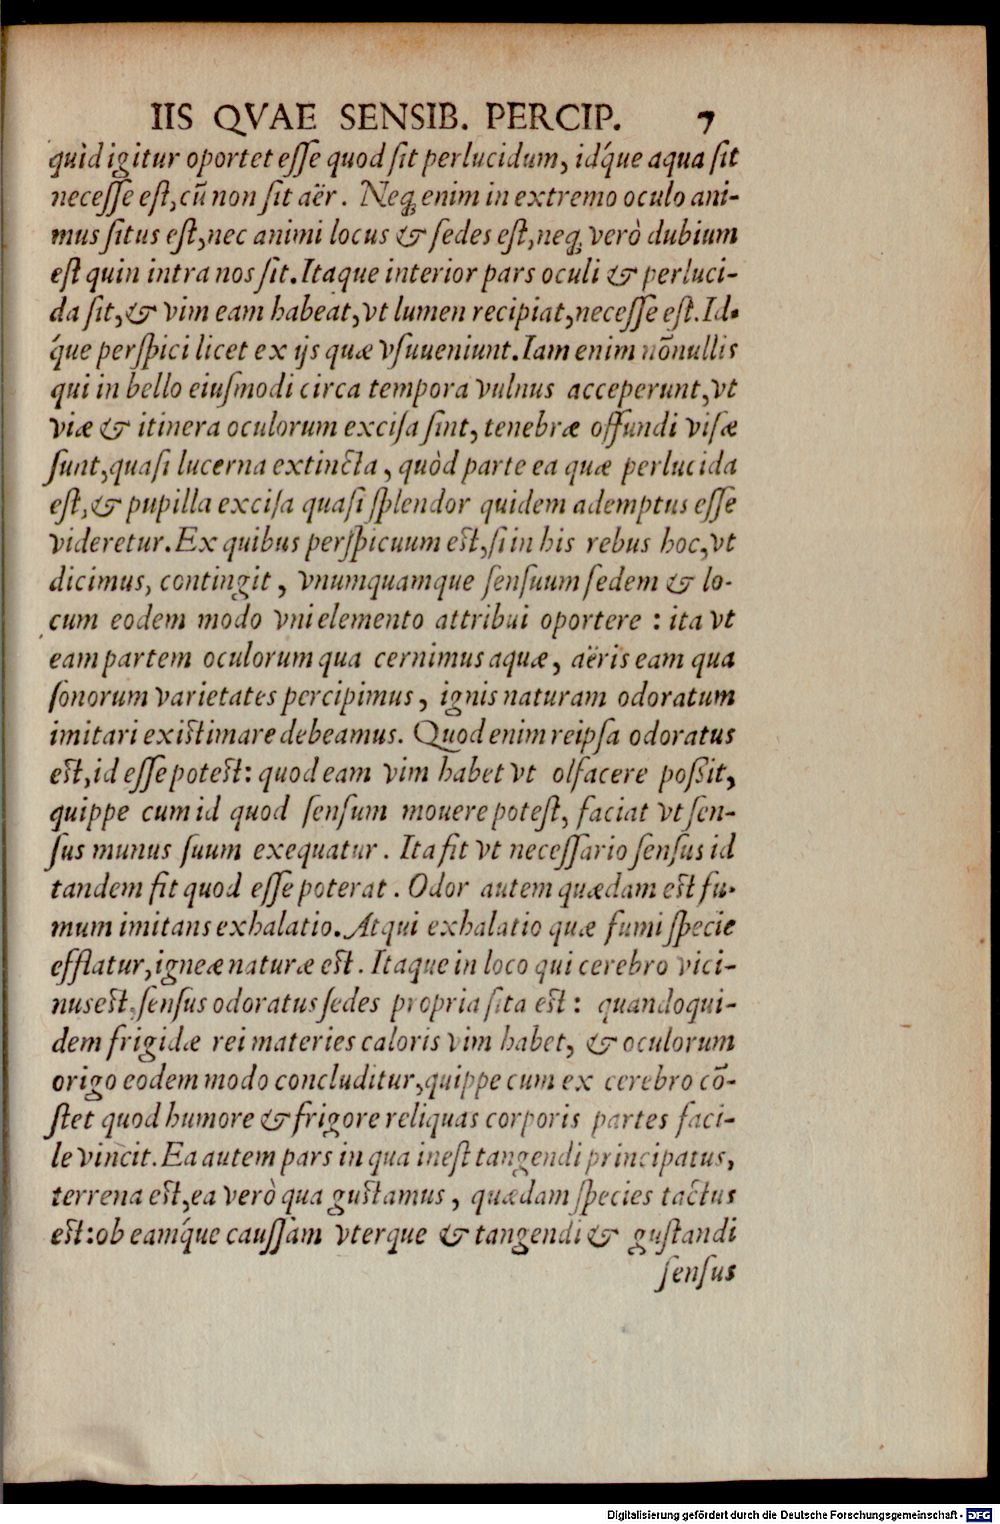 IIS QVAE SENSIB. PERCIP. 7
quid igitur oportet esse quod sit perlucidum, idq́ue aqua sit
necesse est, cũ non sit aër. Neq; enim in extremo oculo ani-
mus situs est, nec animi locus & sedes est, neq; verò dubium
est quin intra nos sit. Itaque interior pars oculi & perluci-
da sit, & vim eam habeat, vt lumen recipiat, necesse est. Id-
q́ue perspici licet ex ijs quæ vsuueniunt. Iam enim nõnullis
qui in bello eiusmodi circa tempora vulnus acceperunt, vt
viæ & itinera oculorum excisa sint, tenebræ offundi visæ
sunt, quasi lucerna extincta, quòd parte ea quæ perlucida
est, & pupilla excisa quasi splendor quidem ademptus esse
videretur. Ex quibus perspicuum est, si in his rebus hoc, vt
dicimus, contingit, vnumquamque sensuum sedem & lo-
cum eodem modo vni elemento attribui oportere : ita vt
eam partem oculorum qua cernimus aquæ, aëris eam qua
sonorum varietates percipimus, ignis naturam odoratum
imitari existimare debeamus. Quod enim reipsa odoratus
est, id esse potest: quod eam vim habet vt olfacere possit,
quippe cum id quod sensum mouere potest, faciat vt sen-
sus munus suum exequatur. Ita fit vt necessario sensus id
tandem fit quod esse poterat. Odor autem quædam est fu-
mum imitans exhalatio. Atqui exhalatio quæ fumi specie
efflatur, igneæ naturæ est. Itaque in loco qui cerebro vici-
nus est, sensus odoratus sedes propria sita est: quandoqui-
dem frigidæ rei materies caloris vim habet, & oculorum
origo eodem modo concluditur, quippe cum ex cerebro cõ-
stet quod humore & frigore reliquas corporis partes faci-
le vincit. Ea autem pars in qua inest tangendi principatus,
terrena est, ea verò qua gustamus, quædam species tactus
est: ob eamq́ue caussam vterque & tangendi & gustandi
sensus
Digitalisierung gefördert durch die Deutsche Forschungsgemeinschaft - DFG